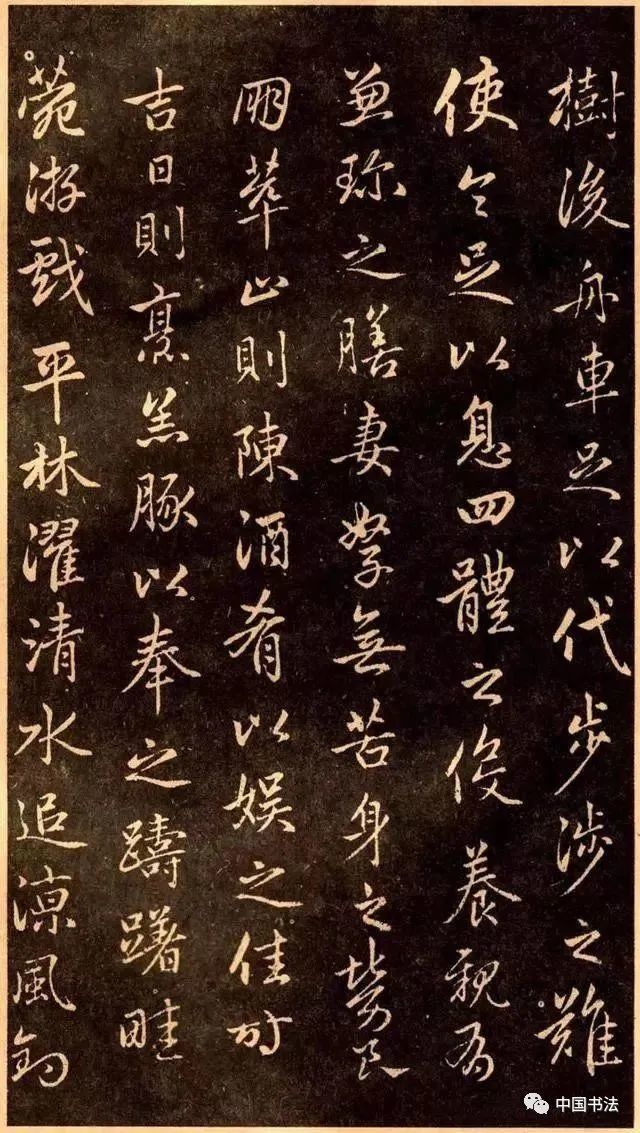 樹後舟車足以代步涉之難
使令足以息四體之役養親有
兼珍之膳妻孥無苦身之勞良
朋萃止則陳酒肴以娛之佳時
吉日則烹羔豚以奉之躊躇畦
菀游戲平林濯清水追涼風釣
中国书法